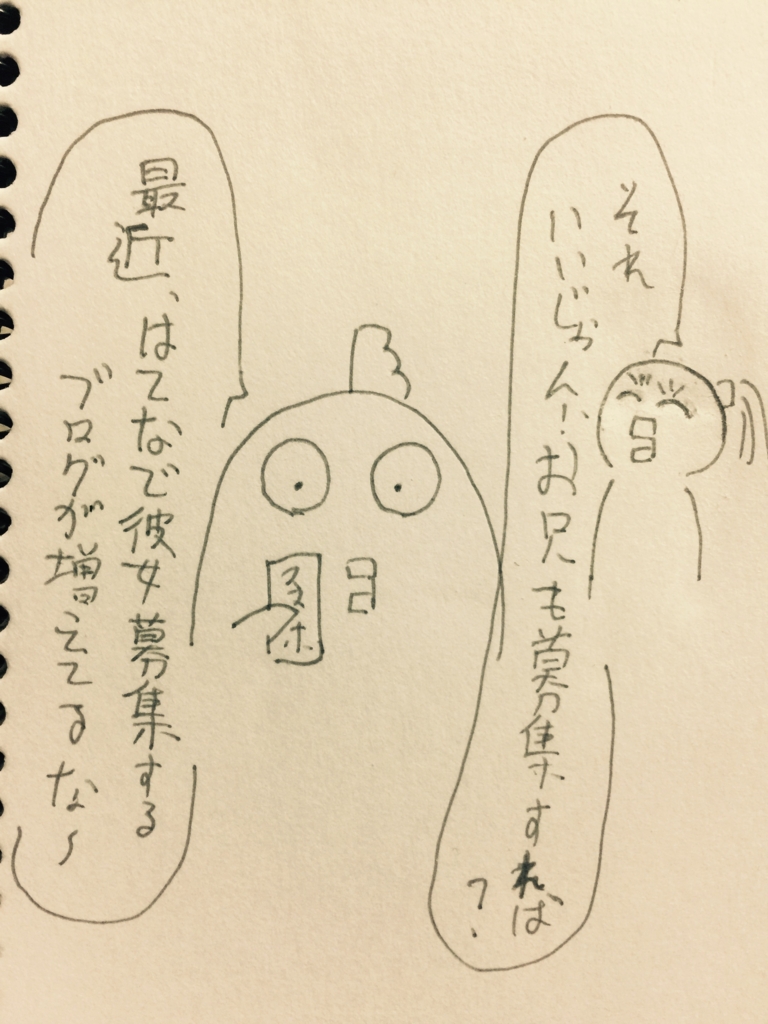 最近、はてなで彼女募集する
ブログが増えてるな〜
それ
いいじゃん!お兄も募集すれば
?